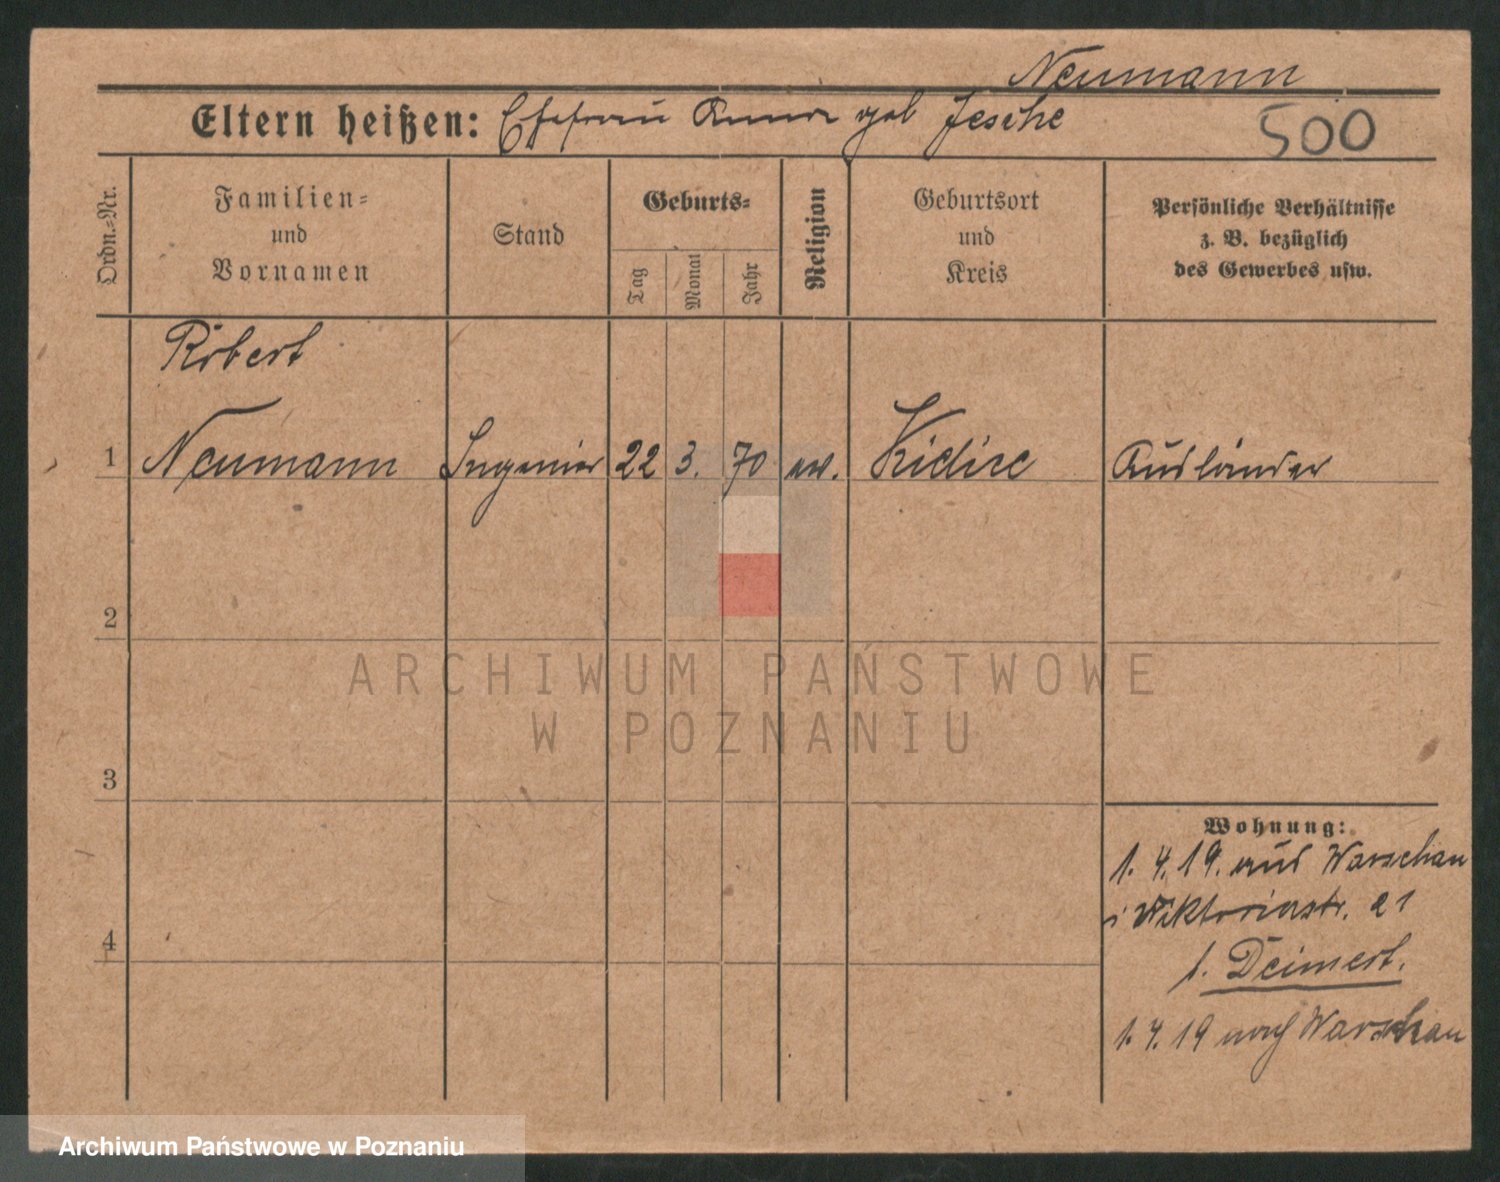 Neumann
Eltern heißen: Ehefrau Anna geb Jesche
500
Ordn.-Nr.
Familien-
und
Vornamen
Stand
Geburts-
Tag
Monat
Jahr
Religion
Geburtsort
und
Kreis
Persönliche Verhältnisse
z. B. bezüglich
des Gewerbes usw.
Robert
1 Neumann Ingenier 22 3. 70 ev. Ausländer
2
3
4
Wohnung:
1. 4. 19. aus Warschau
Viktoriastr. 21
b. Deimert.
1. 4. 19 nach Warschau
ARCHIWUM PAŃSTWOWE
W POZNANIU
Archiwum Państwowe w Poznaniu